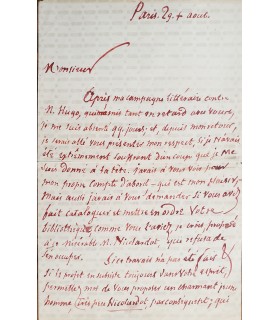 Paris. 29. août.
Monsieur
Après ma campagne littéraire contre
M. Hugo, qui m'a mis tant en retard avec vous,
je me suis absenté 99. jours; et, depuis mon retour,
je serais allé vous présenter mon respect, si je n'avais
été extrêmement souffrant d'un coup que je me
suis donné à la tête. J'avais à vous voir pour
mon propre compte d'abord – qui est mon plaisir,
Mais aussi j'avais à vous demander si vous avez
fait cataloguer et mettre en ordre votre
bibliothèque comme vous l'aviez, je crois, proposé
à ce misérable N. Nicolardot, qui refusa de
s'en occuper.
Si ce travail n'a pas été fait &
si le projet en subsiste toujours dans votre esprit,
permettez-moi de vous proposer un charmant jeune
homme très peu Nicolardot par conséquent; qui